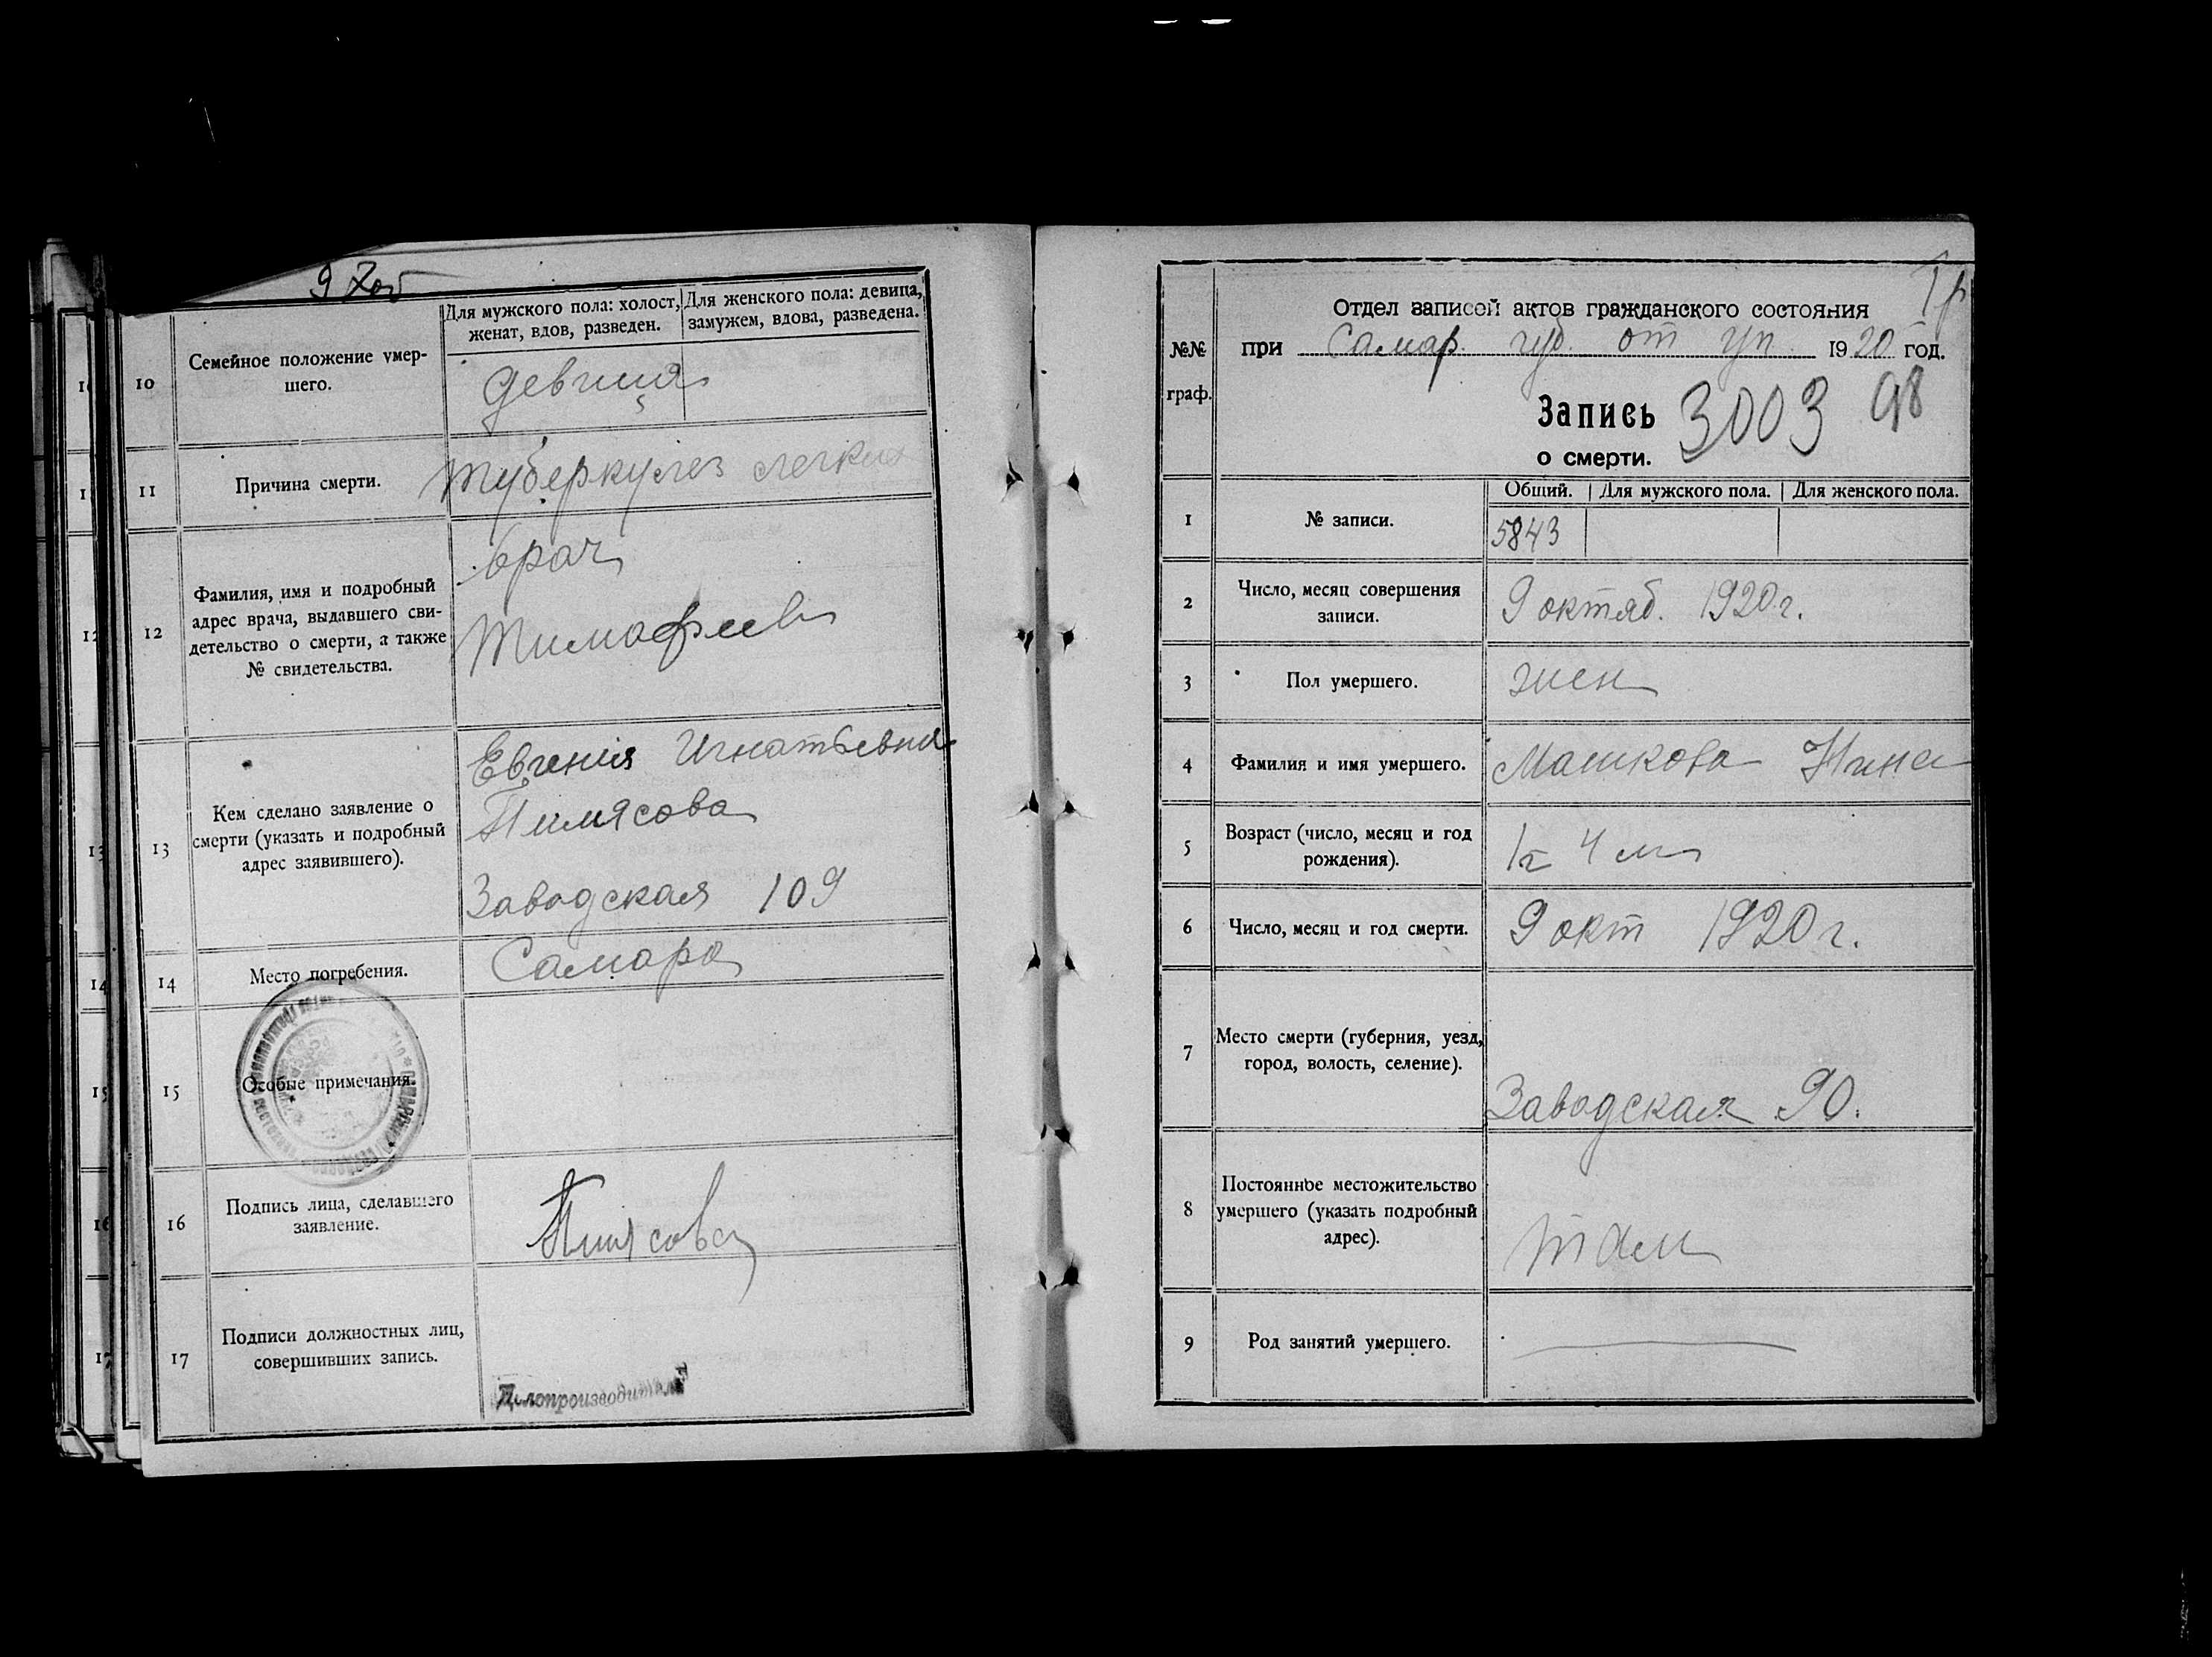 10
Семейное положение умер-
шего.
Для мужского пола: холост,
женат, вдов, разведен.
Для женского пола: девица,
замужем, вдова, разведена.
девица
11
Причина смерти.
туберкулез легких
12
Фамилия, имя и подробный
адрес врача, выдавшего сви-
детельство о смерти, а также
№ свидетельства.
врач
Тимофеев
13
Кем сделано заявление о
смерти (указать и подробный
адрес заявившего).
Евгения Игнатьевна
Пимясова
Заводская 109
14
Место погребения.
Самара
15
Особые примечания.
16
Подпись лица, сделавшего
заявление.
17
Подписи должностных лиц,
совершивших запись.
Делопроизводитель
№№
граф.
Отдел записей актов гражданского состояния
при Самар. губ. от уп. 1920 год.
Запись 3003 98
о смерти.
1
№ записи.
Общий. Для мужского пола. Для женского пола.
5843
2
Число, месяц совершения
записи.
9 октяб. 1920 г.
3
Пол умершего.
жен
4
Фамилия и имя умершего.
Машкова Нина
5
Возраст (число, месяц и год
рождения).
1 г 4 м
6
Число, месяц и год смерти.
9 окт 1920 г.
7
Место смерти (губерния, уезд,
город, волость, селение).
Заводская 90.
8
Постоянное местожительство
умершего (указать подробный
адрес).
там
9
Род занятий умершего.